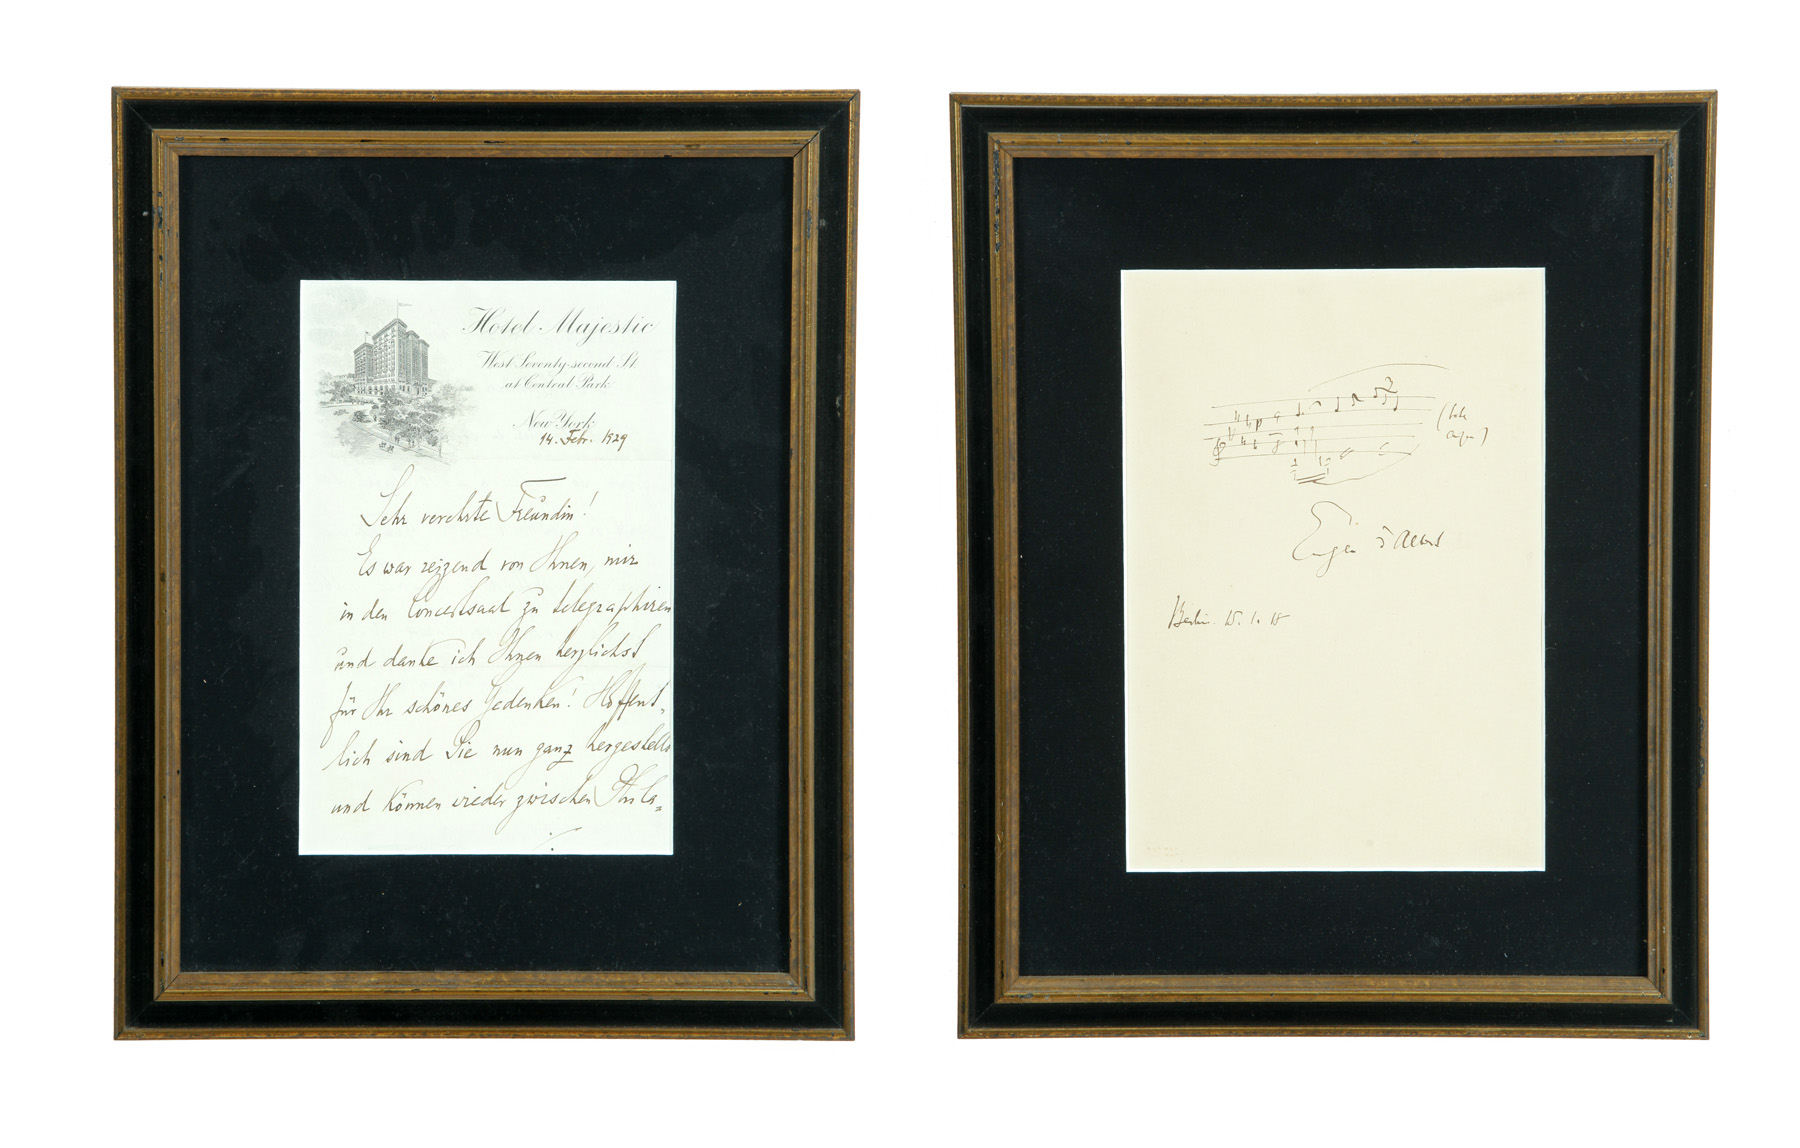 Hotel Majestic
West Seventy-second St.
at Central Park
New York
14. Febr. 1929
Sehr verehrte Freundin!
Es war reizend von Ihnen, mir
in den Concertsaal zu telegraphiren
und danke ich Ihnen herzlichst
für Ihr schönes Gedenken! Hoffent-
lich sind Sie nun ganz hergestellt
und können wieder zwischen Phila=
Eugen d'Albert
Berlin